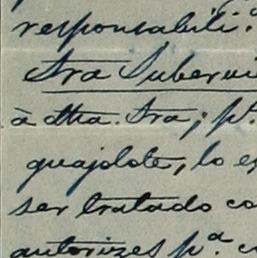 responsabili
Sra Subervi
à dha. Sra; pª
guajolote, lo es
ser tratado co
autorizes pª c